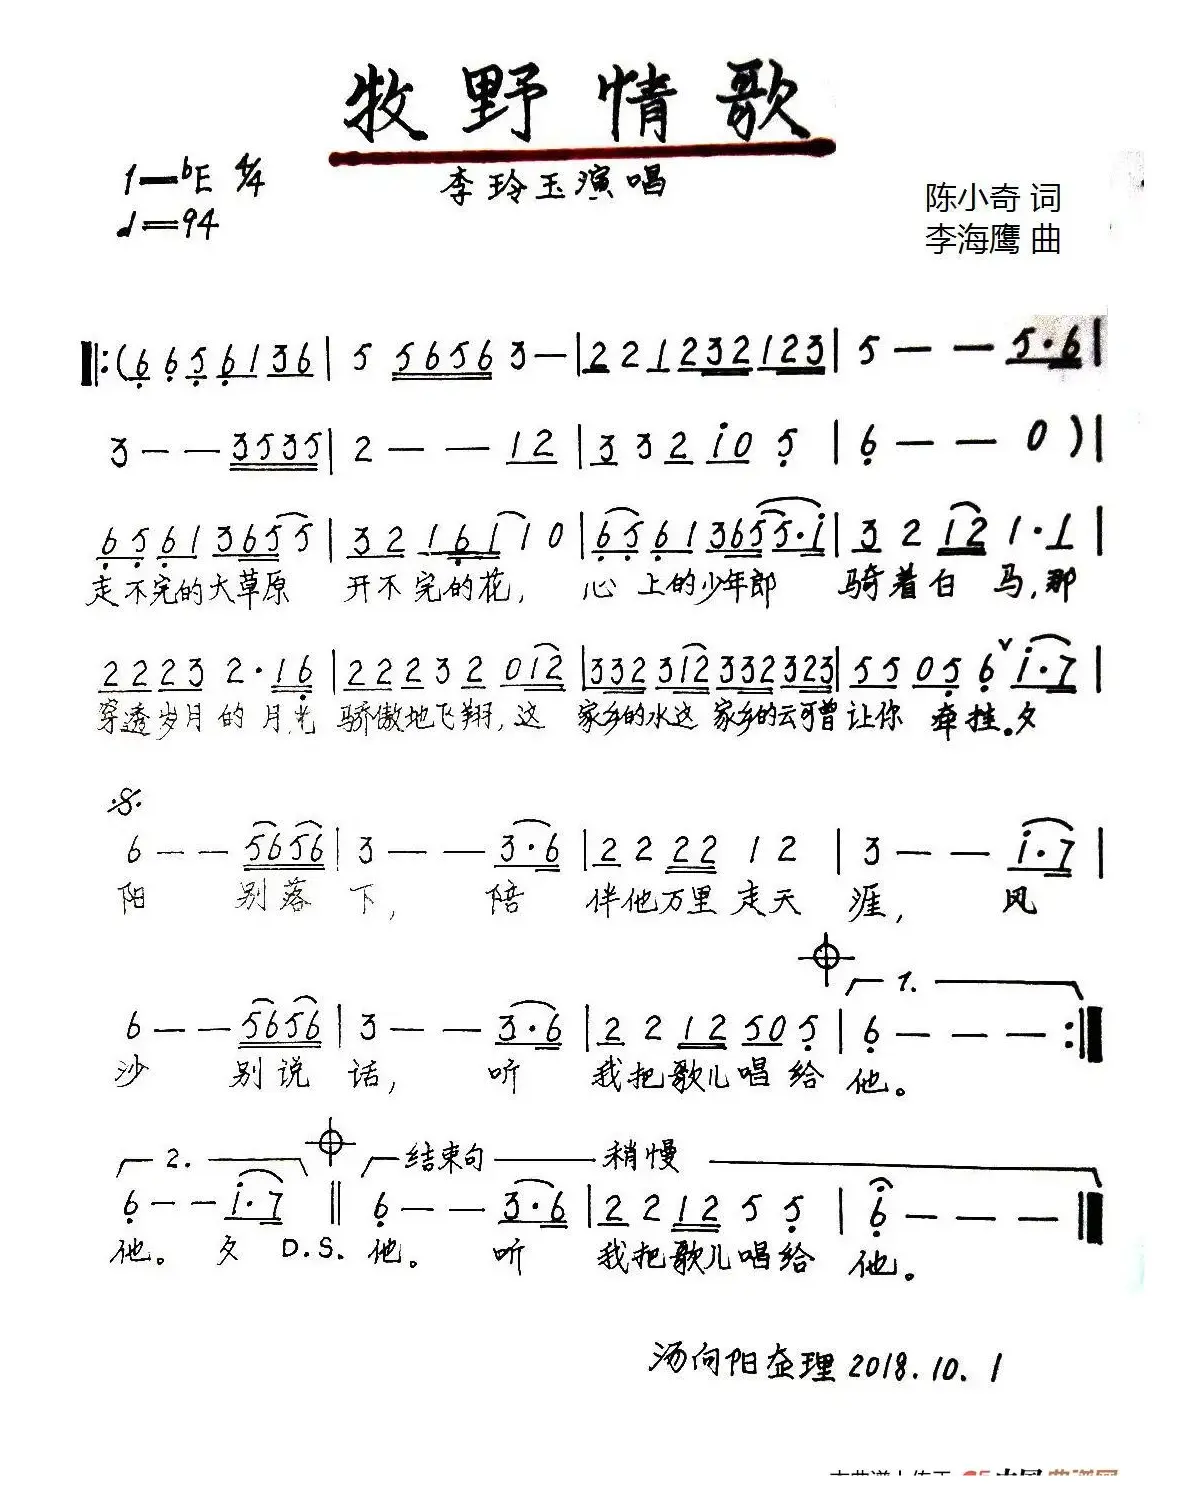 牧野情歌
1=♭E 4/4
李玲玉演唱
陈小奇 词
♩=94
李海鹰 曲
‖:(6 6 5 6 1 3 6 | 5 5 6 5 6 3 — | 2 2 1 2 3 2 1 2 3 | 5 — — 5·6 |
3 — — 3 5 3 5 | 2 — — 1 2 | 3 3 2 i 0 5 | 6 — — 0 ) |
6 5 6 1 3 6 5 5 | 3 2 1 6 1 1 0 | 6 5 6 1 3 6 5 5·i | 3 2 1 2 1·1 |
走不完的大草原 开不完的花, 心上的少年郎 骑着白马,那
2 2 2 3 2·1 6 | 2 2 2 3 2 0 1 2 | 3 3 2 3 1 2 3 3 2 3 2 3 | 5 5 0 5 6 ∨ i·7 |
穿透岁月的月光 骄傲地飞翔,这 家乡的水这家乡的云可曾让你牵挂。夕
6 — — 5 6 5 6 | 3 — — 3·6 | 2 2 2 2 1 2 | 3 — — i·7 |
阳 别落下, 陪 伴他万里走天涯, 风
1.
6 — — 5 6 5 6 | 3 — — 3·6 | 2 2 1 2 5 0 5 | 6 — — — :‖
沙 别说话, 听 我把歌儿唱给他。
2. 结束句 稍慢
6 — — i·7 ‖ 6 — — 3·6 | 2 2 1 2 5 5 | 6 — — — ‖
他。 夕 D.S. 他。 听 我把歌儿唱给他。
汤向阳整理 2018.10.1